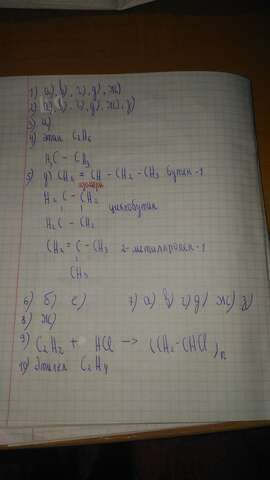 1) а), в), г), д), ж)
2) а), в), г), д), ж), з)
3) а)
4) этан C2H6
H3C - CH3
5) д) CH2 = CH - CH2 - CH3 бутен-1
изомеры
H2C - CH2
H2C - CH2 циклобутан
CH2 = C - CH3 2-метилпропен-1
CH3
6) б) 2) 7) а) в) г) д) ж) з)
8) ж)
9) C2H2 + HCl → (CH2-CHCl)n
10) Этилен C2H4